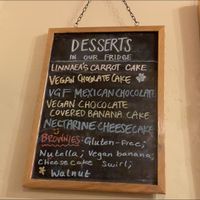 DESSERTS
IN OUR FRIDGE
LINNAEA'S CARROT CAKE
VEGAN CHOCOLATE CAKE
VGF MEXICAN CHOCOLATE
VEGAN CHOCOLATE
COVERED BANANA CAKE
NECTARINE CHEESECAKE
BROWNIES: Gluten-Free;
Nutella; Vegan banana;
Cheesecake Swirl;
* Walnut